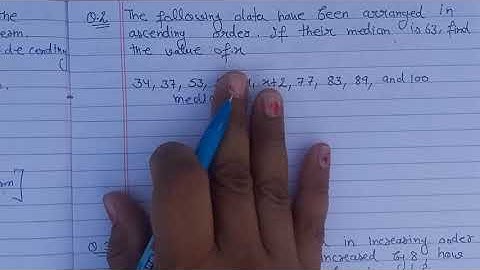 the
rem.
de cending
Q.2 The following data have been arranged in
ascending order. If their median is 63, find
the value of x
34, 37, 53, x+2, 77, 83, 89, and 100
medi
Q.3 in increasing order
increased by 8 hour